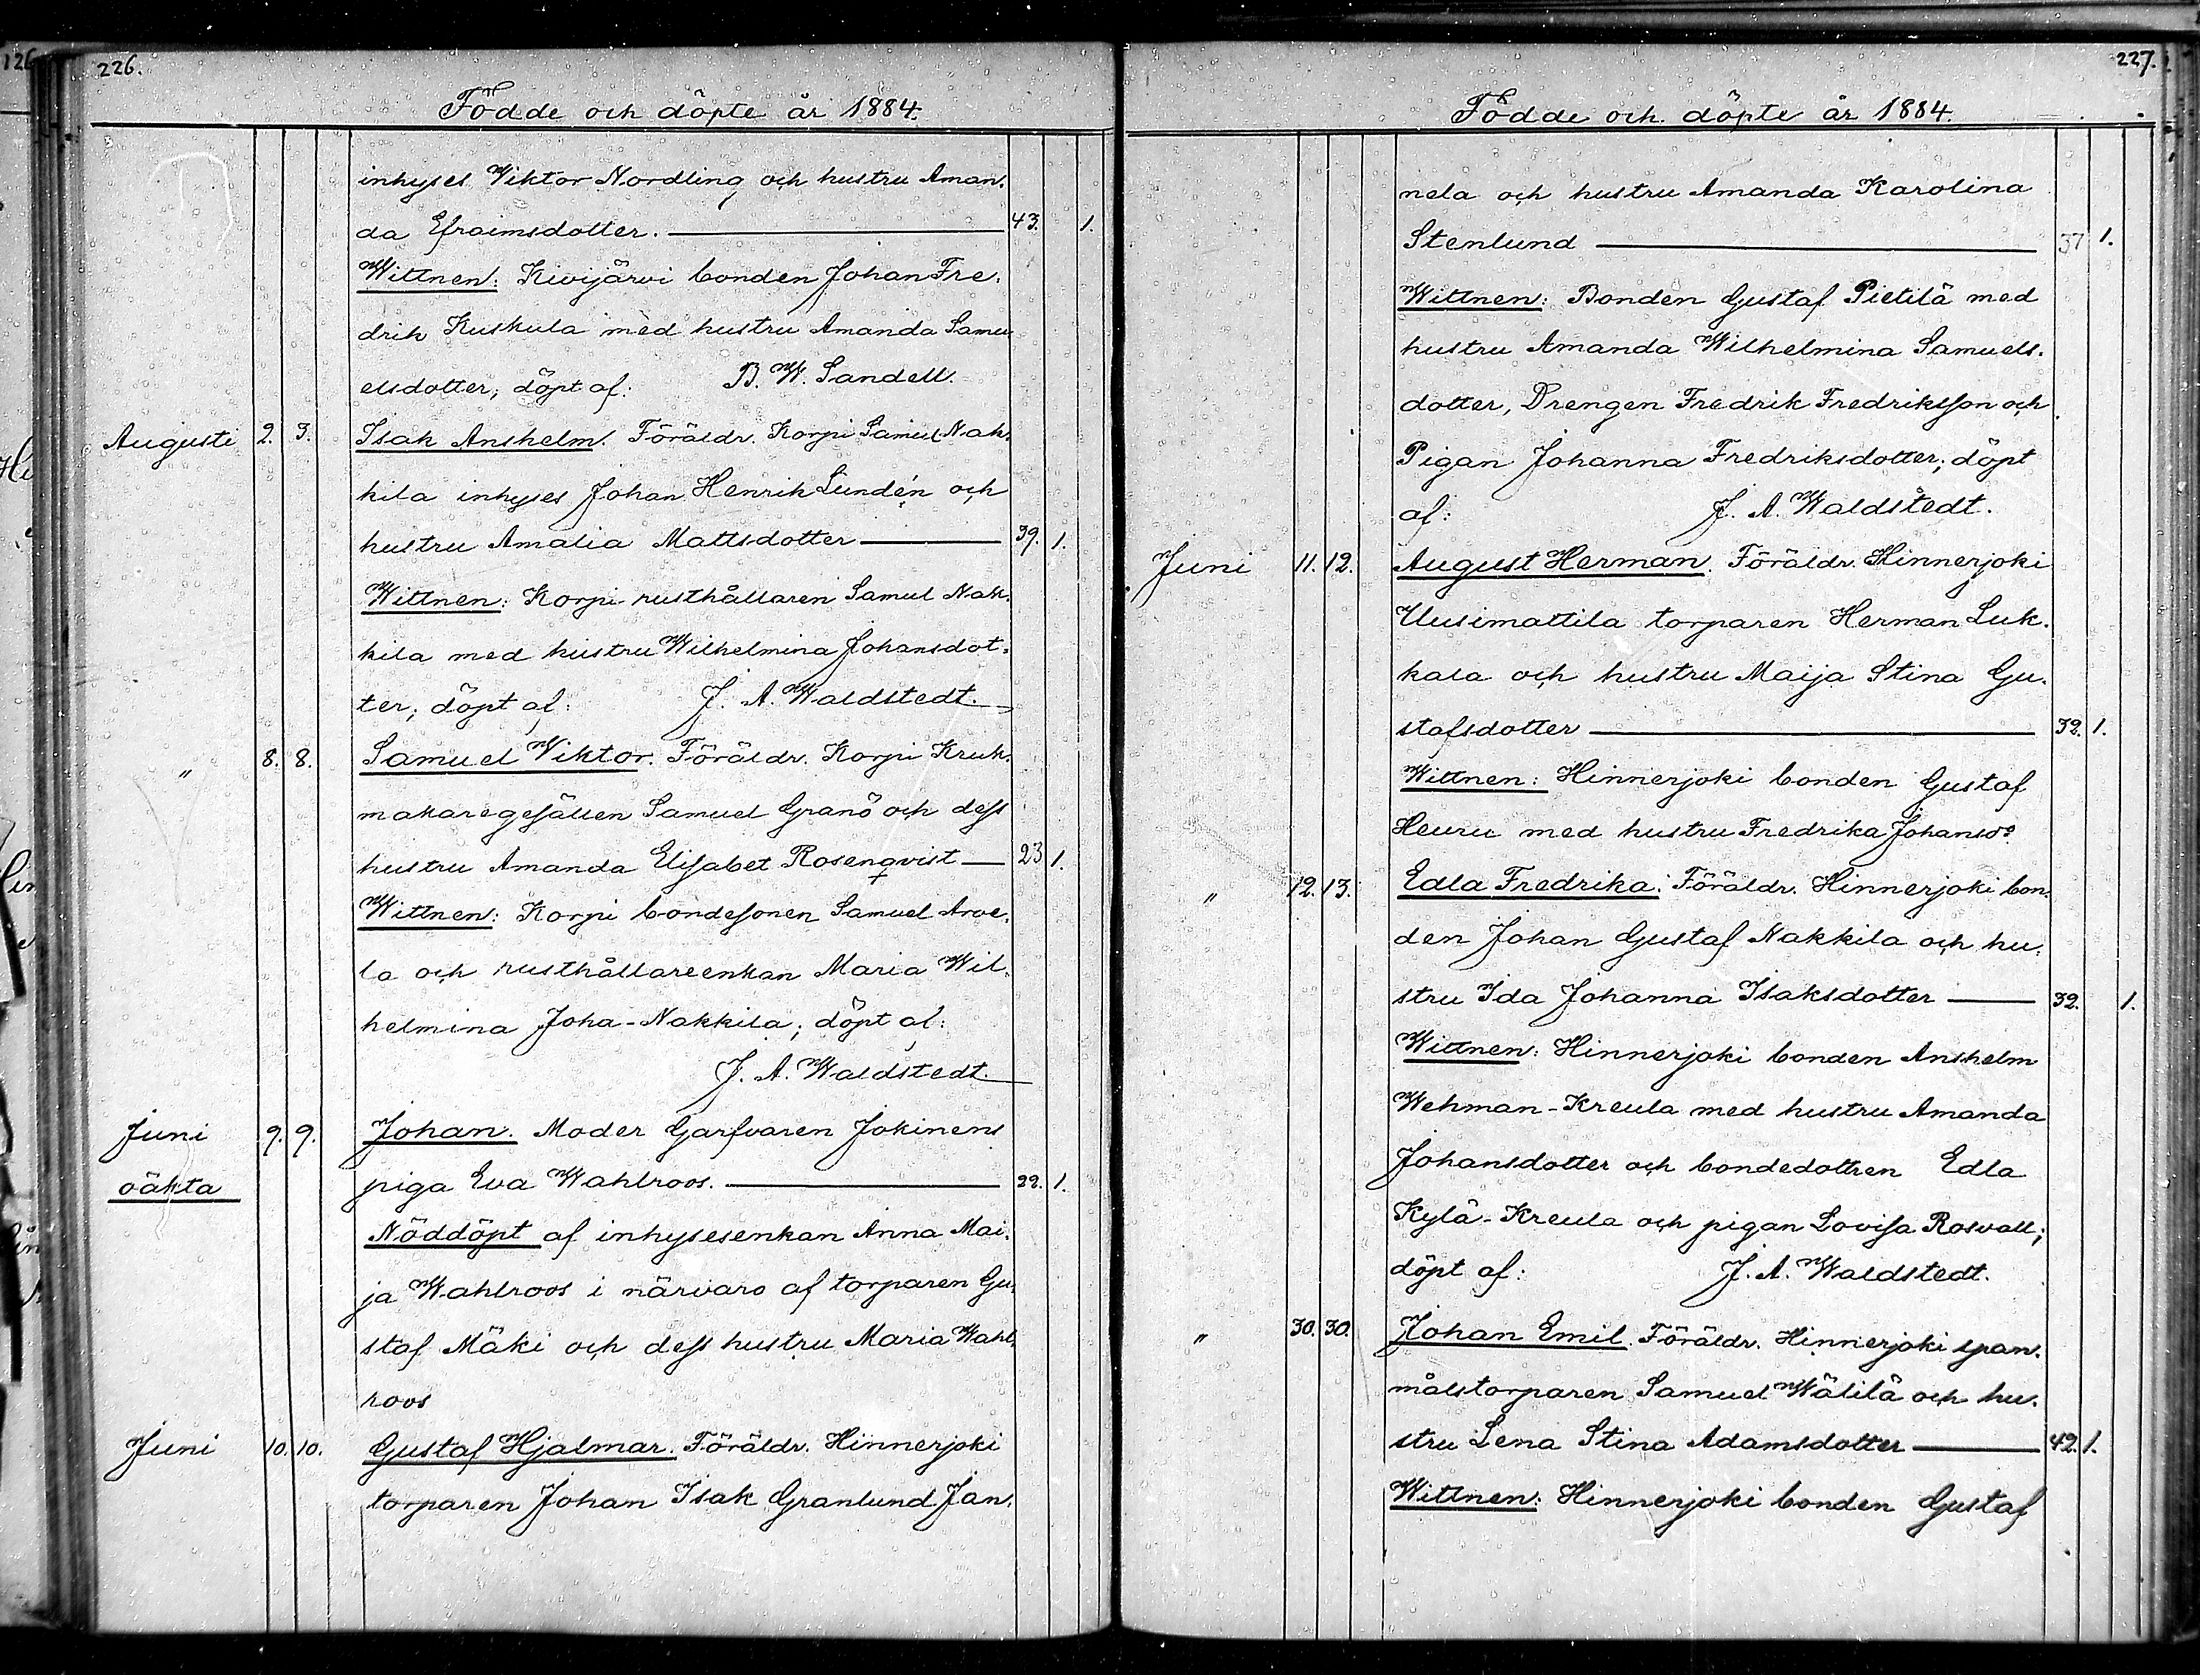 226.
Födde och döpte år 1884.
inhyses Viktor Nordling och hustru Aman-
da Efraimsdotter. 43. 1.
Wittnen: Kivijärvi bonden Johan Fre-
drik Kuskula med hustru Amanda Samu
elsdotter, döpt af: B. W. Sandell.
Augusti 2. 3. Isak Anshelm. Föräldr. Korpi Samul Nak-
kila inhyses Johan Henrik Lundén och
hustru Amalia Mattsdotter 39. 1.
Wittnen: Korpi rusthållaren Samul Nak-
kila med hustru Wilhelmina Johansdot-
ter; döpt af: J. A. Waldstedt.
" 8. 8. Samuel Viktor. Föräldr. Korpi Kruk-
makaregesällen Samuel Granö och dess
hustru Amanda Elisabet Rosenqvist 23 1.
Wittnen: Korpi bondesonen Samuel Arve-
la och rusthållareenkan Maria Wil-
helmina Joha-Nakkila; döpt af:
J. A. Waldstedt.
Juni 9. 9. Johan. Moder Garfvaren Jokinens
oäkta piga Eva Wahlroos. 22. 1.
Nöddöpt af inhysesenkan Anna Mai-
ja Wahlroos i närvaro af torparen Gu-
staf Mäki och dess hustru Maria Wahl-
roos
Juni 10. 10. Gustaf Hjalmar. Föräldr. Hinnerjoki
torparen Johan Isak Granlund Jan-
227.
Födde och döpte år 1884.
nela och hustru Amanda Karolina
Stenlund 37 1.
Wittnen: Bonden Gustaf Pietilä med
hustru Amanda Wilhelmina Samuels-
dotter, Drengen Fredrik Fredriksson och
Pigan Johanna Fredriksdotter; döpt
af: J. A. Waldstedt.
Juni 11. 12. August Herman. Föräldr. Hinnerjoki
Uusimattila torparen Herman Luk-
kala och hustru Maija Stina Gu-
stafsdotter 32. 1.
Wittnen: Hinnerjoki bonden Gustaf
Heuru med hustru Fredrika Johansdr
" 12. 13. Edla Fredrika. Föräldr. Hinnerjoki bon-
den Johan Gustaf Nakkila och hu-
stru Ida Johanna Isaksdotter 32. 1.
Wittnen: Hinnerjoki bonden Anshelm
Wehman-Kreula med hustru Amanda
Johansdotter och bondedottren Edla
Kylä-Kreula och pigan Lovisa Rosvall;
döpt af: J. A. Waldstedt.
" 30. 30. Johan Emil. Föräldr. Hinnerjoki span-
målstorparen Samuel Wälilä och hu-
stru Lena Stina Adamsdotter 42. 1.
Wittnen: Hinnerjoki bonden Gustaf